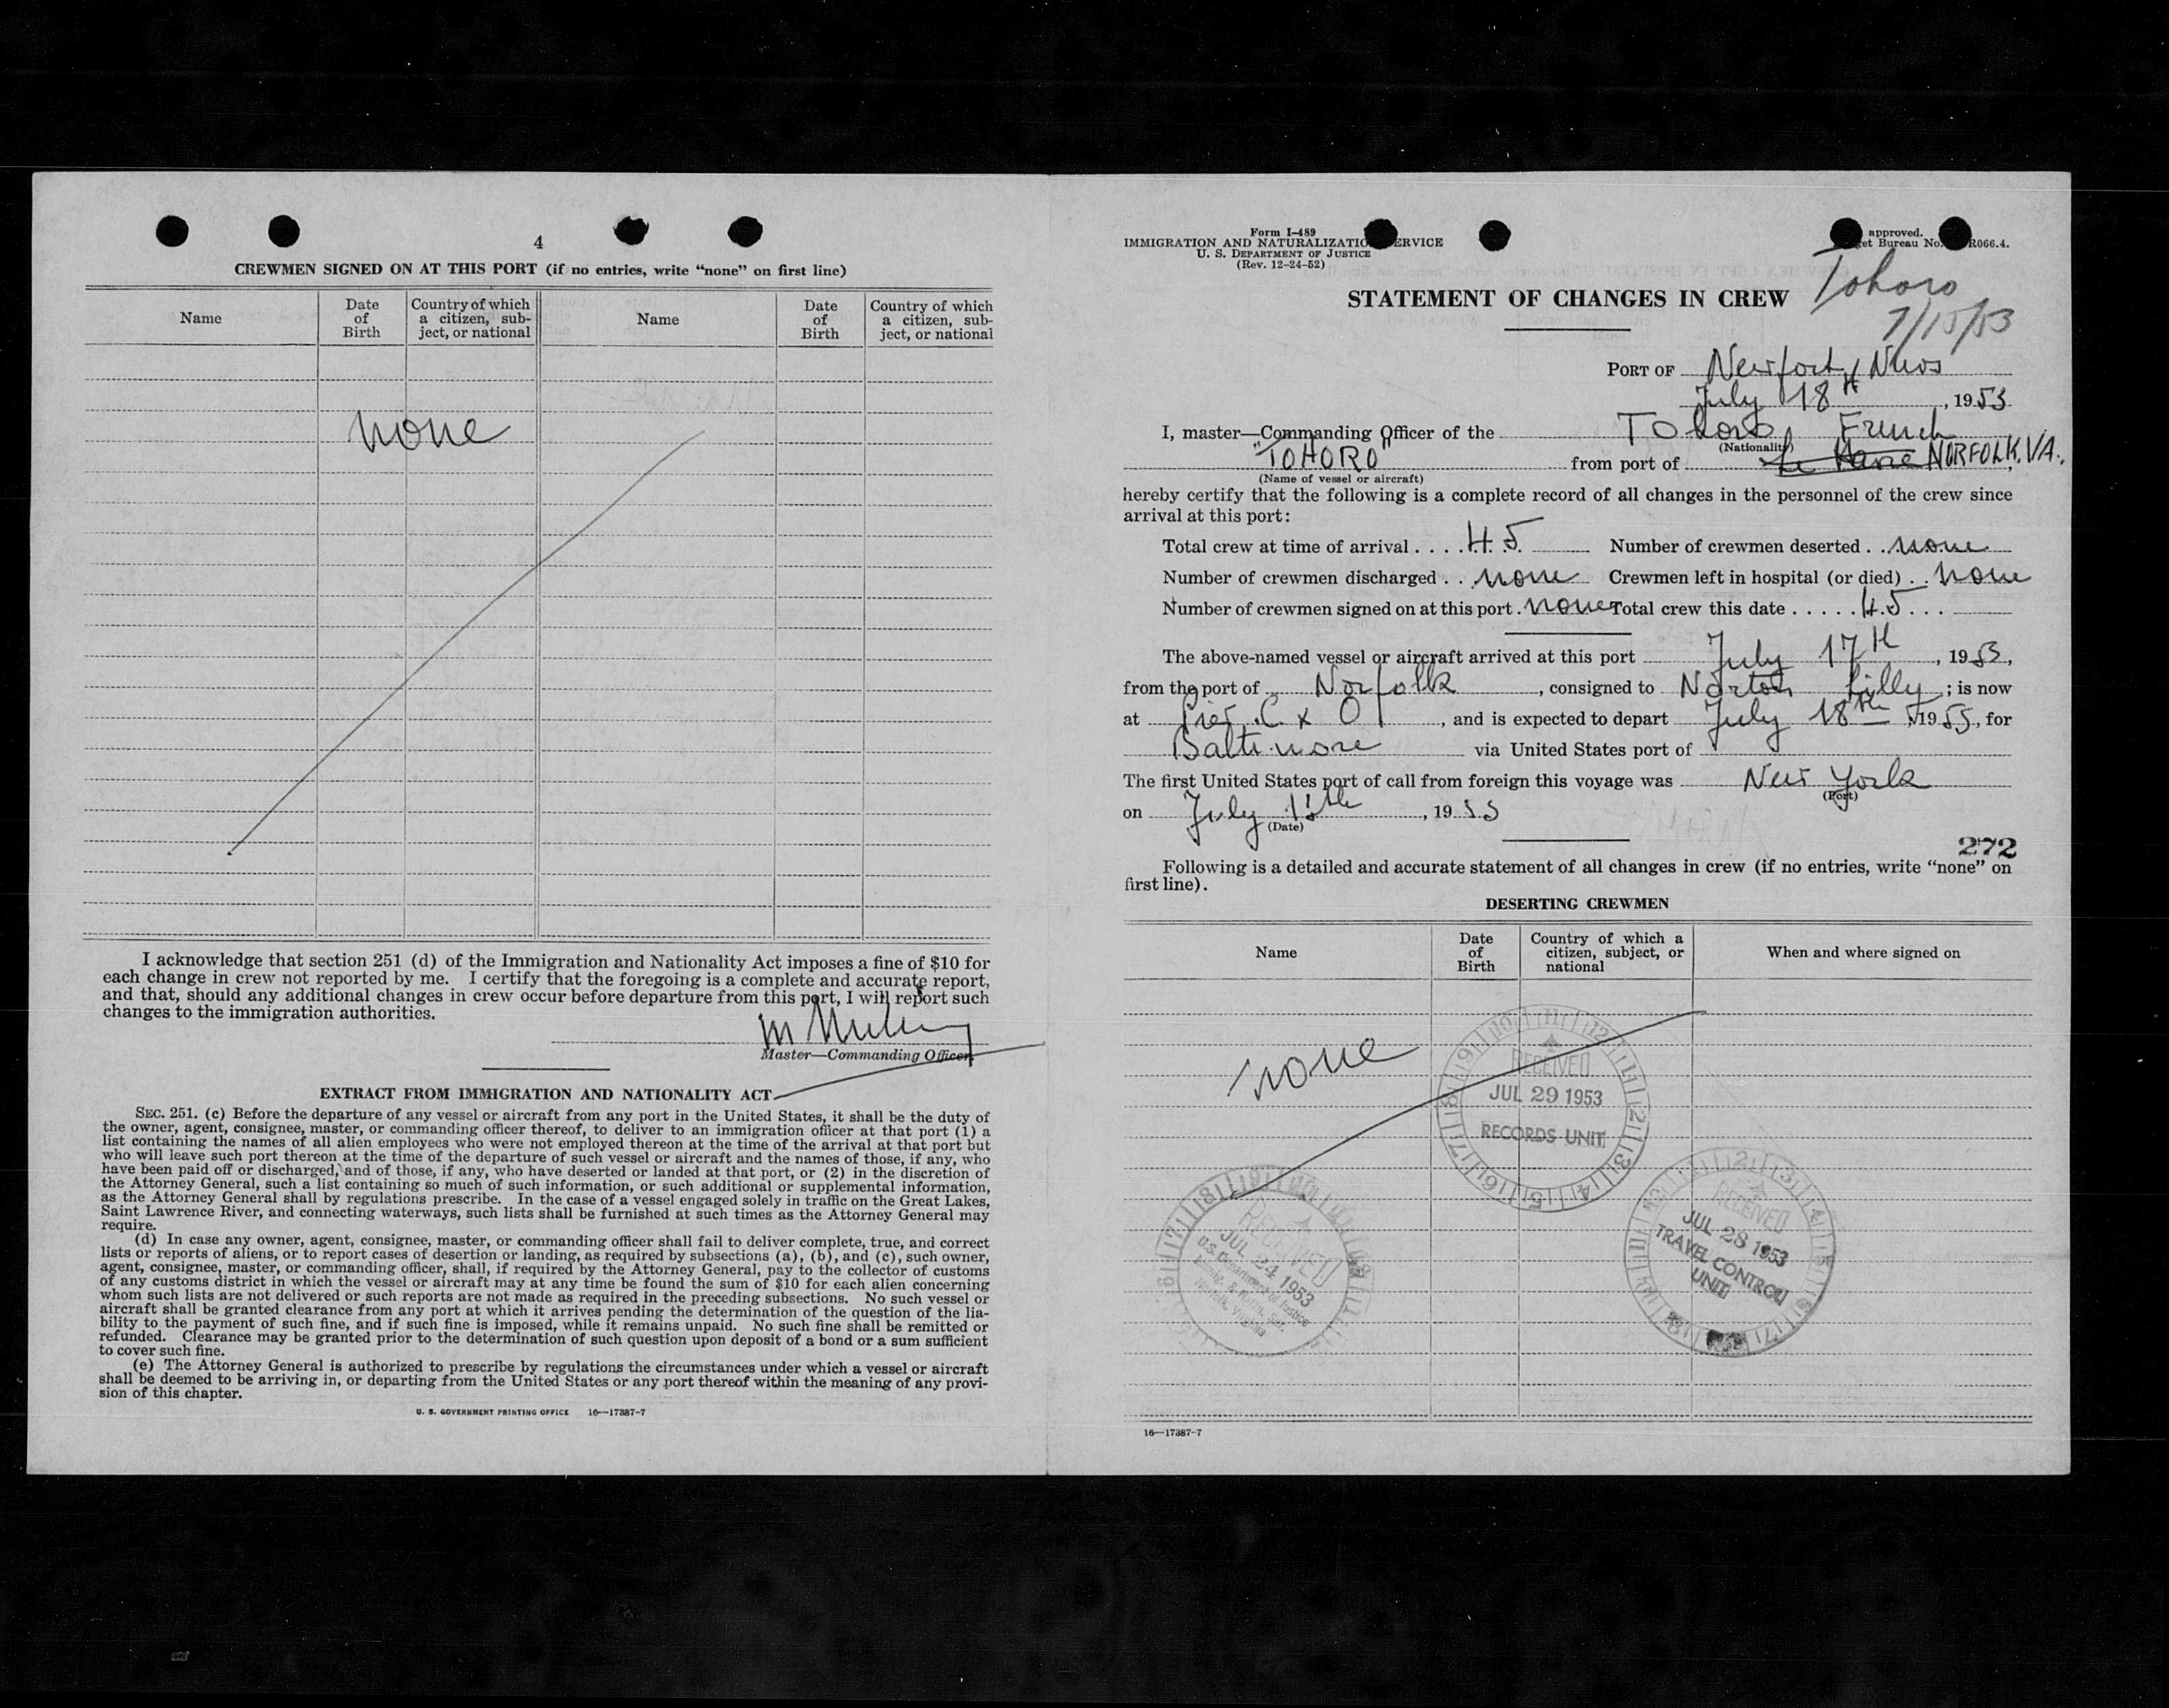 4
CREWMEN SIGNED ON AT THIS PORT (if no entries, write “none” on first line)
Name
Date of Birth
Country of which a citizen, sub-ject, or national
Name
Date of Birth
Country of which a citizen, sub-ject, or national
none
I acknowledge that section 251 (d) of the Immigration and Nationality Act imposes a fine of $10 for
each change in crew not reported by me. I certify that the foregoing is a complete and accurate report,
and that, should any additional changes in crew occur before departure from this port, I will report such
changes to the immigration authorities.
Master—Commanding Officer.
EXTRACT FROM IMMIGRATION AND NATIONALITY ACT
SEC. 251. (c) Before the departure of any vessel or aircraft from any port in the United States, it shall be the duty of
the owner, agent, consignee, master, or commanding officer thereof, to deliver to an immigration officer at that port (1) a
list containing the names of all alien employees who were not employed thereon at the time of the arrival at that port but
who will leave such port thereon at the time of the departure of such vessel or aircraft and the names of those, if any, who
have been paid off or discharged, and of those, if any, who have deserted or landed at that port, or (2) in the discretion of
the Attorney General, such a list containing so much of such information, or such additional or supplemental information,
as the Attorney General shall by regulations prescribe. In the case of a vessel engaged solely in traffic on the Great Lakes,
Saint Lawrence River, and connecting waterways, such lists shall be furnished at such times as the Attorney General may
require.
(d) In case any owner, agent, consignee, master, or commanding officer shall fail to deliver complete, true, and correct
lists or reports of aliens, or to report cases of desertion or landing, as required by subsections (a), (b), and (c), such owner,
agent, consignee, master, or commanding officer, shall, if required by the Attorney General, pay to the collector of customs
of any customs district in which the vessel or aircraft may at any time be found the sum of $10 for each alien concerning
whom such lists are not delivered or such reports are not made as required in the preceding subsections. No such vessel or
aircraft shall be granted clearance from any port at which it arrives pending the determination of the question of the lia-
bility to the payment of such fine, and if such fine is imposed, while it remains unpaid. No such fine shall be remitted or
refunded. Clearance may be granted prior to the determination of such question upon deposit of a bond or a sum sufficient
to cover such fine.
(e) The Attorney General is authorized to prescribe by regulations the circumstances under which a vessel or aircraft
shall be deemed to be arriving in, or departing from the United States or any port thereof within the meaning of any provi-
sion of this chapter.
U. S. GOVERNMENT PRINTING OFFICE 16—17387-7
Form I-489
IMMIGRATION AND NATURALIZATIO ERVICE
U. S. DEPARTMENT OF JUSTICE
(Rev. 12-24-52)
approved.
et Bureau No. R066.4.
Tohoro
7/15/53
STATEMENT OF CHANGES IN CREW
PORT OF Newport News
July 18th, 1953
I, master—Commanding Officer of the Tohoro French
(Nationality)
"TOHORO" from port of Le Havre NORFOLK, VA.,
(Name of vessel or aircraft)
hereby certify that the following is a complete record of all changes in the personnel of the crew since
arrival at this port:
Total crew at time of arrival .... 45 Number of crewmen deserted .. none
Number of crewmen discharged .. none Crewmen left in hospital (or died) .. none
Number of crewmen signed on at this port . none Total crew this date ..... 45 ...
The above-named vessel or aircraft arrived at this port July 17th, 1953,
from the port of Norfolk, consigned to Norton Lilly; is now
at Pier C x O, and is expected to depart July 18th, 1953, for
Baltimore via United States port of
The first United States port of call from foreign this voyage was New York
(Port)
on July , 1953
(Date)
272
Following is a detailed and accurate statement of all changes in crew (if no entries, write “none” on
first line).
DESERTING CREWMEN
Name
Date of Birth
Country of which a citizen, subject, or national
When and where signed on
none
RECEIVED
JUL 29 1953
RECORDS UNIT
RECEIVED
JUL 24 1953
U.S. Department of Justice
Immig. & Natn. Ser.
Norfolk, Virginia
RECEIVED
JUL 28 1953
TRAVEL CONTROL
UNIT
16—17387-7